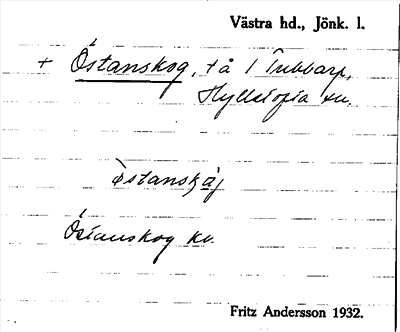 Västra hd., Jönk. l.
+ Östanskog, tå / Tubbarp,
Hyllstofta sn.
östanskåj
Östanskog kv.
Fritz Andersson 1932.